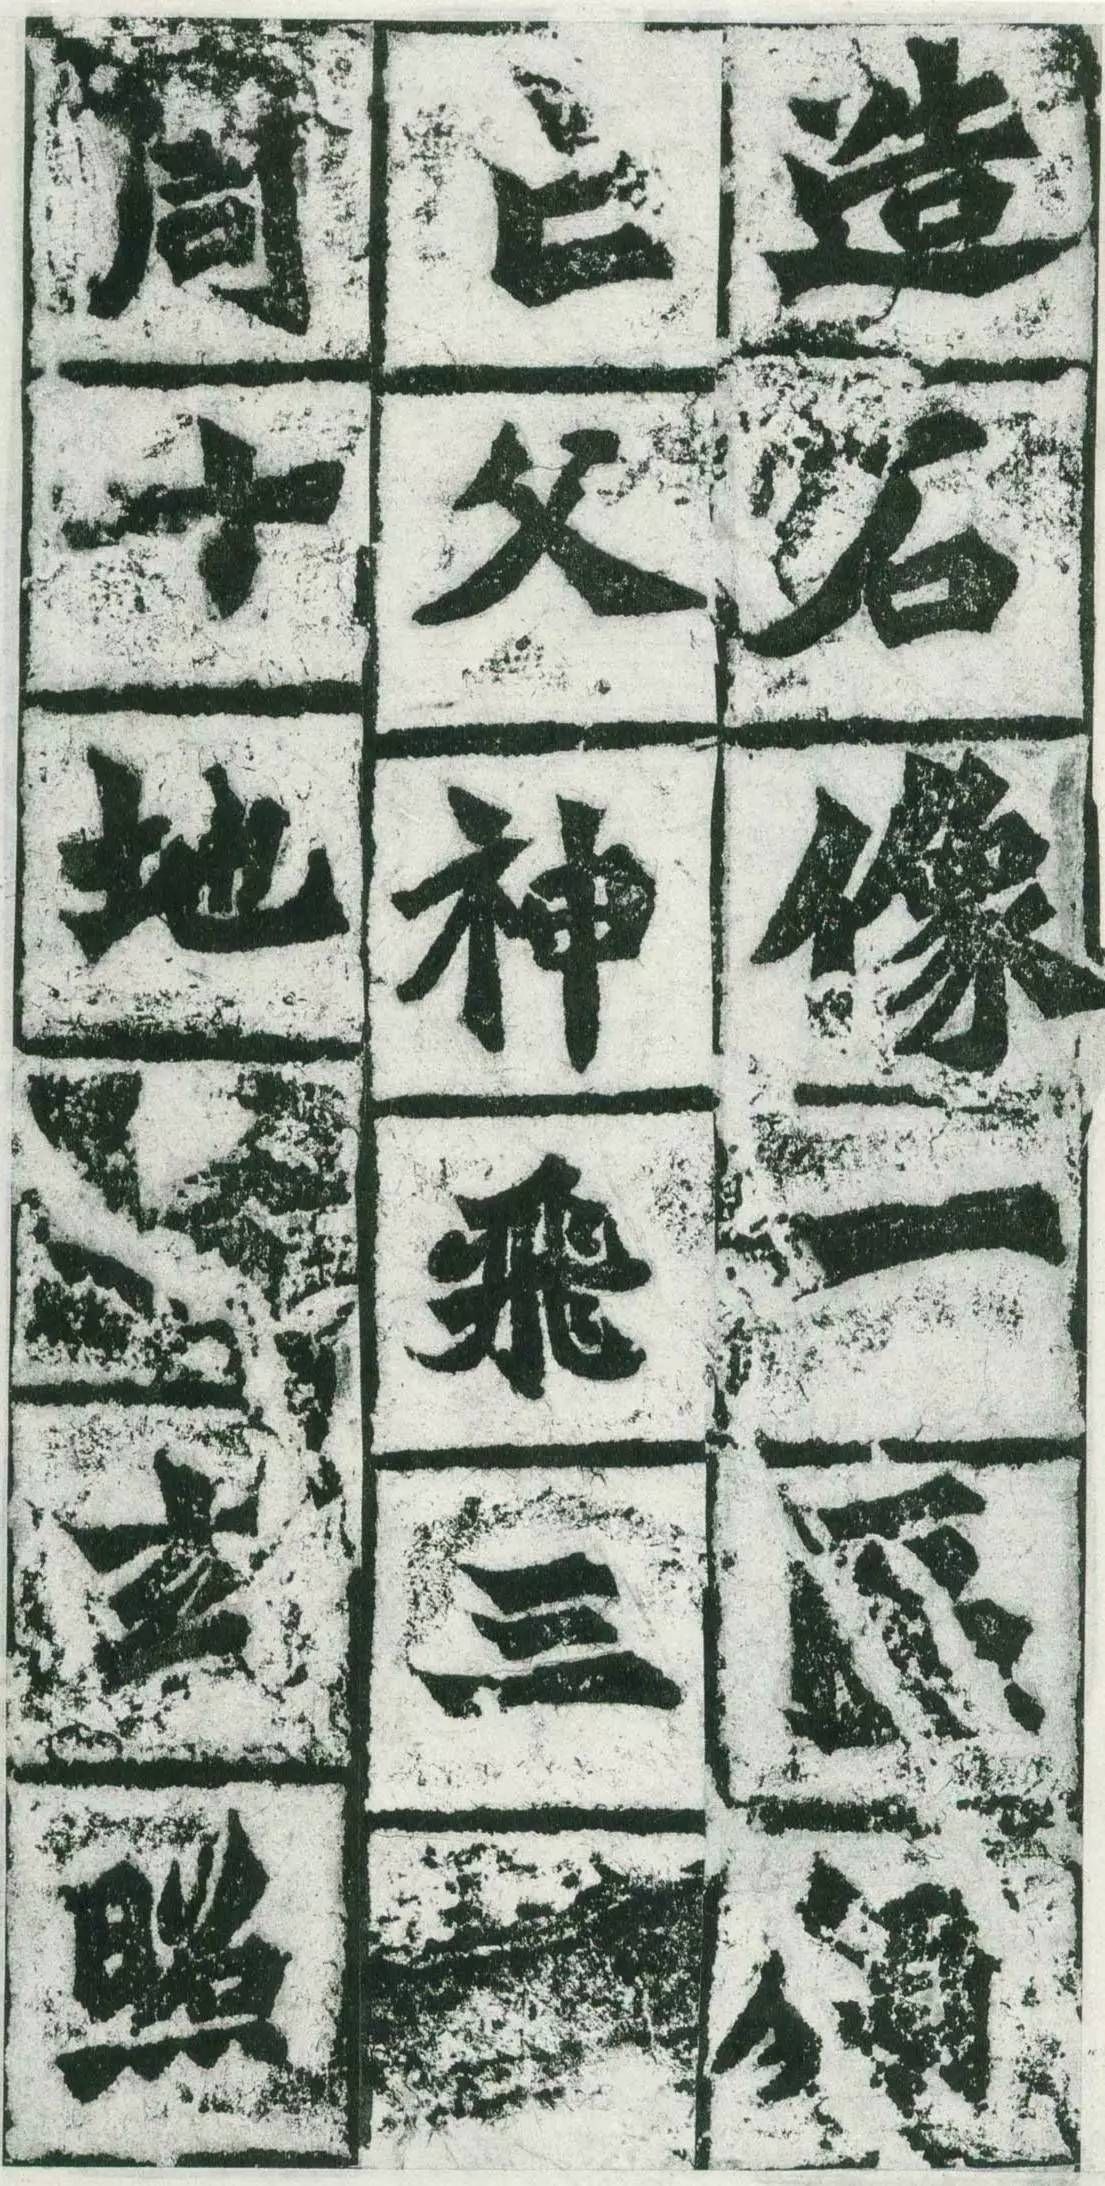 造石像一區願
亡父神飛三
周十地□玄照